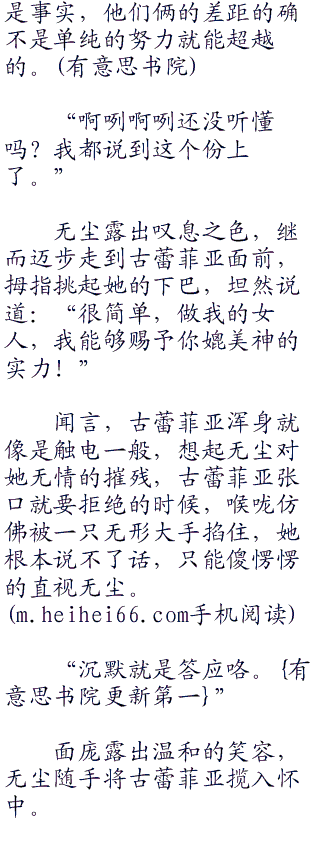 是事实，他们俩的差距的确
不是单纯的努力就能超越
的。(有意思书院)
“啊咧啊咧还没听懂
吗？我都说到这个份上
了。”
无尘露出叹息之色，继
而迈步走到古蕾菲亚面前，
拇指挑起她的下巴，坦然说
道：“很简单，做我的女
人，我能够赐予你媲美神的
实力！”
闻言，古蕾菲亚浑身就
像是触电一般，想起无尘对
她无情的摧残，古蕾菲亚张
口就要拒绝的时候，喉咙仿
佛被一只无形大手掐住，她
根本说不了话，只能傻愣愣
的直视无尘。
(m.heihei66.com手机阅读)
“沉默就是答应咯。{有
意思书院更新第一}”
面庞露出温和的笑容，
无尘随手将古蕾菲亚揽入怀
中。